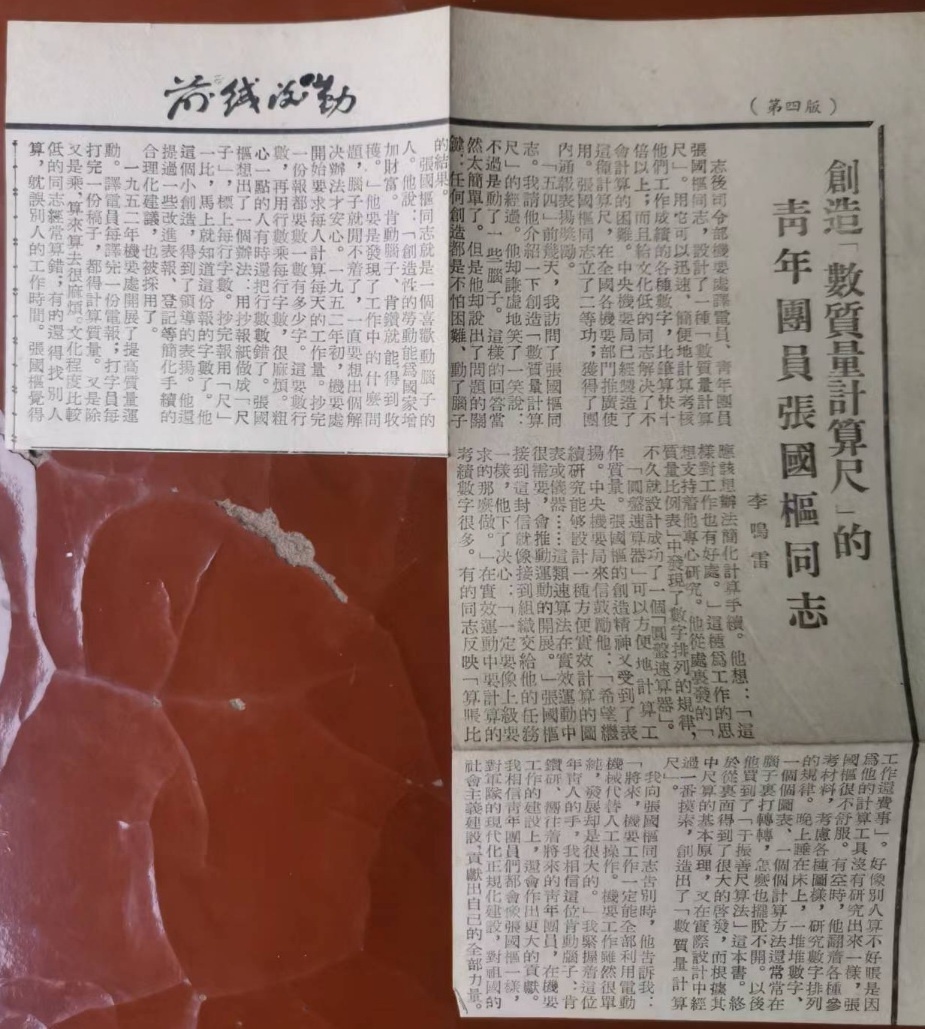 前线後勤
（第四版）
創造「數質量計算尺」的
青年團員張國樞同志
李鳴雷
志後司令部機要處譯電員、青年團員
張國樞同志，設計了一種「數質量計算
尺」。用它可以迅速、簡便地計算考核
他們工作成績的各種數字，比筆算快十
倍以上；而且給文化低的同志解決了不
會計算的困難。中央機要局已經製造了
這種計算尺，在全國各機要部門推廣使
用。張國樞同志立了二等功；獲得了團
內通報表揚獎勵。
「五四」前幾天，我訪問了張國樞同
志。我請他介紹一下創造「數質量計算
尺」的經過。他却謙虛地笑了一笑說：
不過是動了一些腦子。這樣的回答當
然太簡單了。但是他却說出了問題的關
鍵：任何創造都是不怕困難、動了腦子
的結果。
張國樞同志就是一個喜歡動腦子的
人。他說：「創造性的勞動能爲國家增
加財富。肯動腦子、肯鑽就能得到收
穫。」他要是發現了工作中的什麽問
題，腦子就閒不着了，一直要想出個解
決辦法才安心。一九五二年初，機要處
開始要求每人計算每天的工作量。抄完
一份報都要數一數有多少字。這要數行
數，再用行數乘每行字數，很麻煩。粗
心一點的人有時還把行數數錯了。張國
樞想出了一個辦法：用抄報紙做成「尺
子」，標上每行字數。抄完報用「尺」
一比，馬上就知道這份報的字數了。他
這個小創造，得到了領導的表揚。他還
提過一些改進表報、登記等簡化手續的
合理化建議，也被採用了。
一九五二年機要處開展了提高質量運
動。譯電員每譯完一份電報；打字員每
打完一份稿子，都得計算質量。又是除
又是乘，算來算去很麻煩。文化程度比較
低的同志經常算錯；有的還得找別人
算，就誤別人的工作時間。張國樞覺得
應該想辦法簡化計算手續。他想：「這
樣對工作也有好處。」這種爲工作的思
想支持着他專心研究。他從處裏發的「
質量比例表」中發現了數字排列的規律，
不久就設計成功了一個「圓盤速算器」。
「圓盤速算器」可以方便地計算工
作質量。張國樞的創造精神又受到了表
揚。中央機要局來信鼓勵他：「希望繼
續研究能够設計一種方便實效計算的圖
表或儀器……這類速算法在實效運動中
很需要，會推動運動的開展。」張國樞
接到這封信就像接到組織交給他的任務
一樣，他下了決心：「一定要像上級要
求的那麼做。」在實效運動中要計算的
考績數字很多。有的同志反映「算賬比
工作還費事」。好像別人算不好賬是因
爲他的計算工具沒有研究出來一樣，張
國樞很不舒服。有空時，他翻着各種參
考材料，考慮各種圖樣，研究數字排列
的規律。晚上睡在床上，一堆堆數字、
一個個圖表、一個個計算方法還常常在
腦子裏打轉轉，怎麼也擺脫不開。以後
他買到了「于振善尺算法」這本書。終
於從裏面得到了很大的啓發，而根據其
中尺算的基本原理，又在實際設計中經
過一番摸索，創造出了「數質量計算
尺」。
我向張國樞同志告別時，他告訴我：
「將來，機要工作一定能全部利用電動
機械代替人工操作。機要工作雖然很單
純，發展却是很大的。」我緊握着這位
年青人的手，我相信這位肯動腦子；肯
鑽研、嚮往着將來的青年團員，在機要
工作的建設上，還會作出更大的貢獻。
我相信青年團員們都會像張國樞一樣，
對軍隊的現代化正規化建設，對祖國的
社會主義建設，貢獻出自己的全部力量。